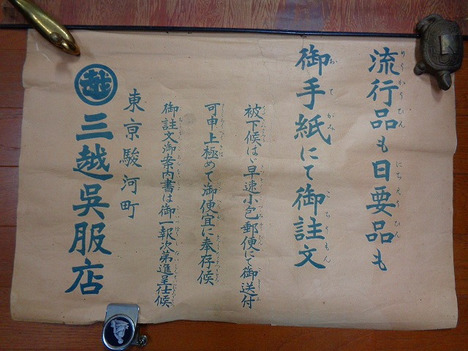 流行品も日要品も
御手紙にて御註文
被下候はゞ早速小包郵便にて御送付
可申上極めて御便宜に奉存候
御註文御案内書は御一報次第進呈仕候
東京駿河町
越 三越呉服店